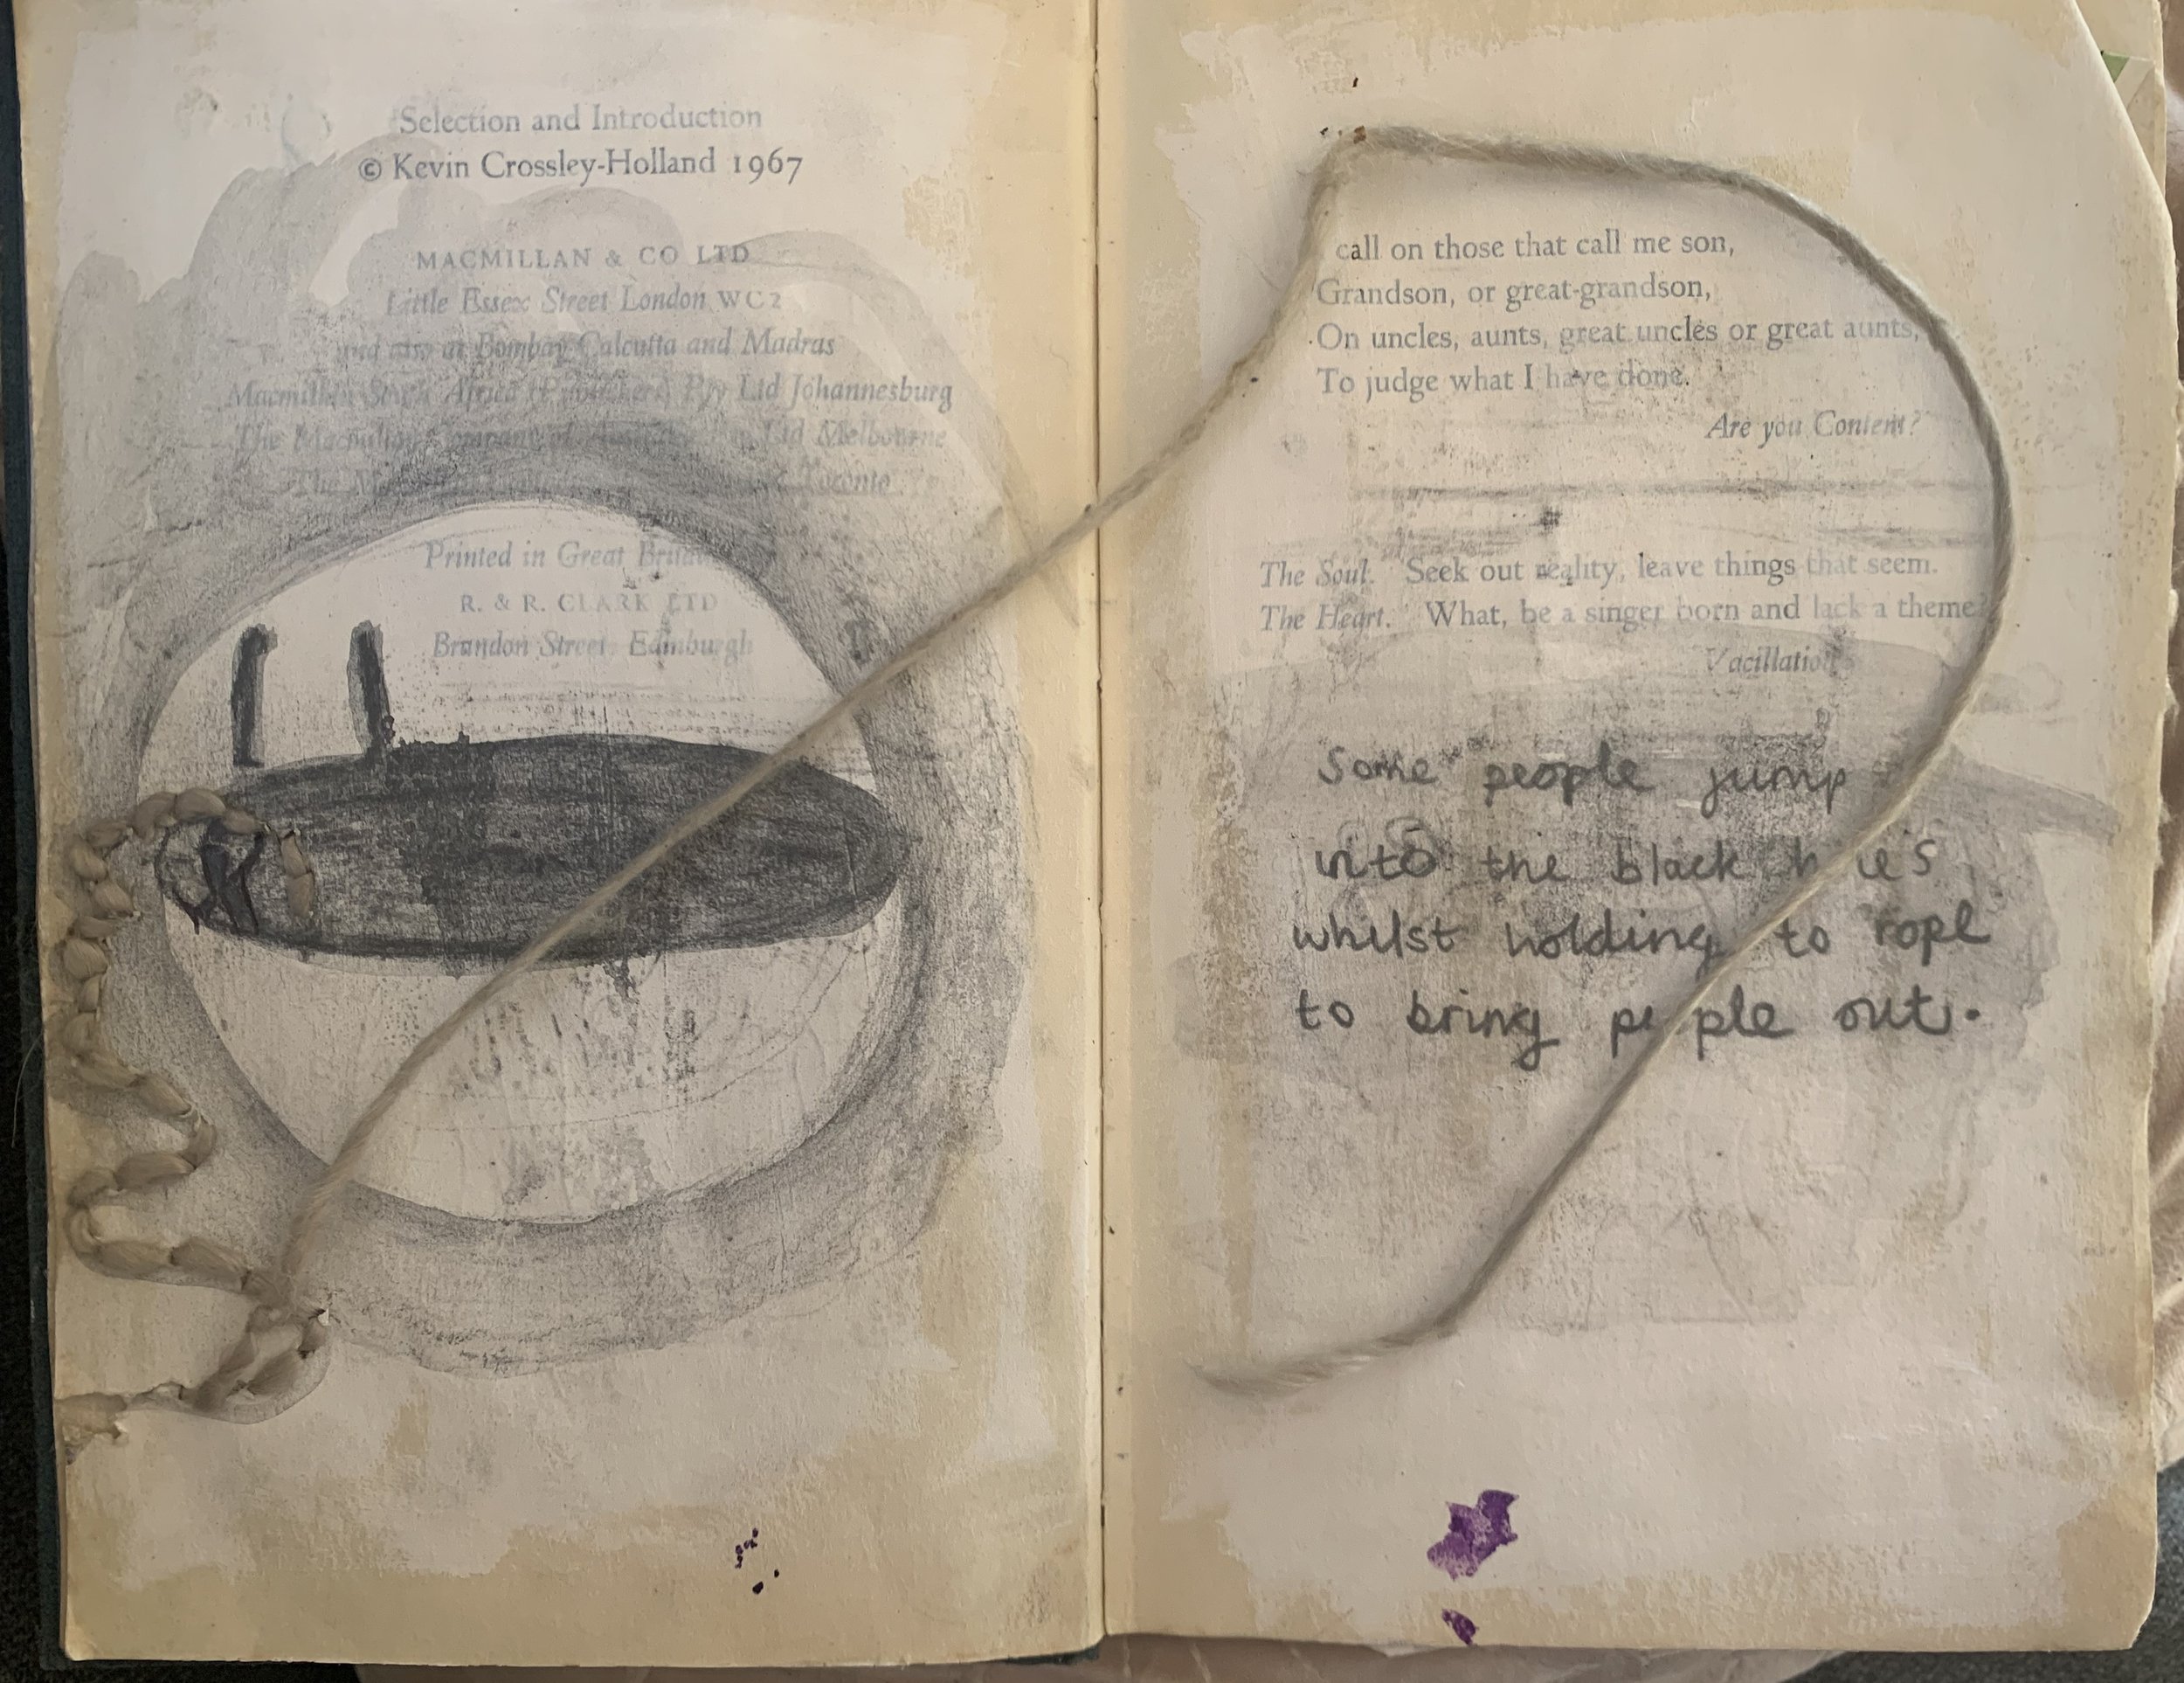 Selection and Introduction
© Kevin Crossley-Holland 1967
MACMILLAN & CO LTD
Little Essex Street London WC2
and also at Bombay Calcutta and Madras
Macmillan South Africa (Publishers) Pty Ltd Johannesburg
The Macmillan Company of Australia Pty Ltd Melbourne
The Toronto
Printed in Great Britain
R. & R. CLARK LTD
Brandon Street Edinburgh
call on those that call me son,
Grandson, or great-grandson,
On uncles, aunts, great uncles or great aunts,
To judge what I have done.
Are you Content?
The Soul. Seek out reality, leave things that seem.
The Heart. What, be a singer born and lack a theme?
Vacillation
Some people jump
into the black
whilst holding to rope
to bring people out.